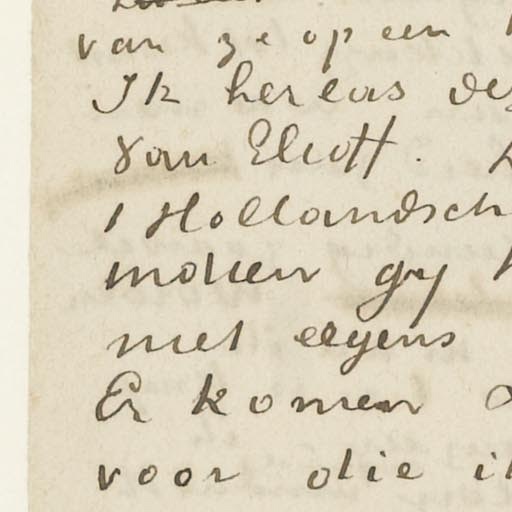 van ze op een
Ik herlas de
van Eliott.
1 Hollandsch
moeten gy
niet ergens
Er komen
voor die ik